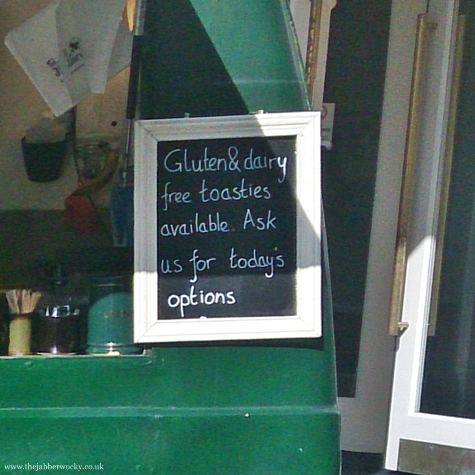 Gluten & dairy
free toasties
available. Ask
us for today's
options
www.thejabberwocky.co.uk